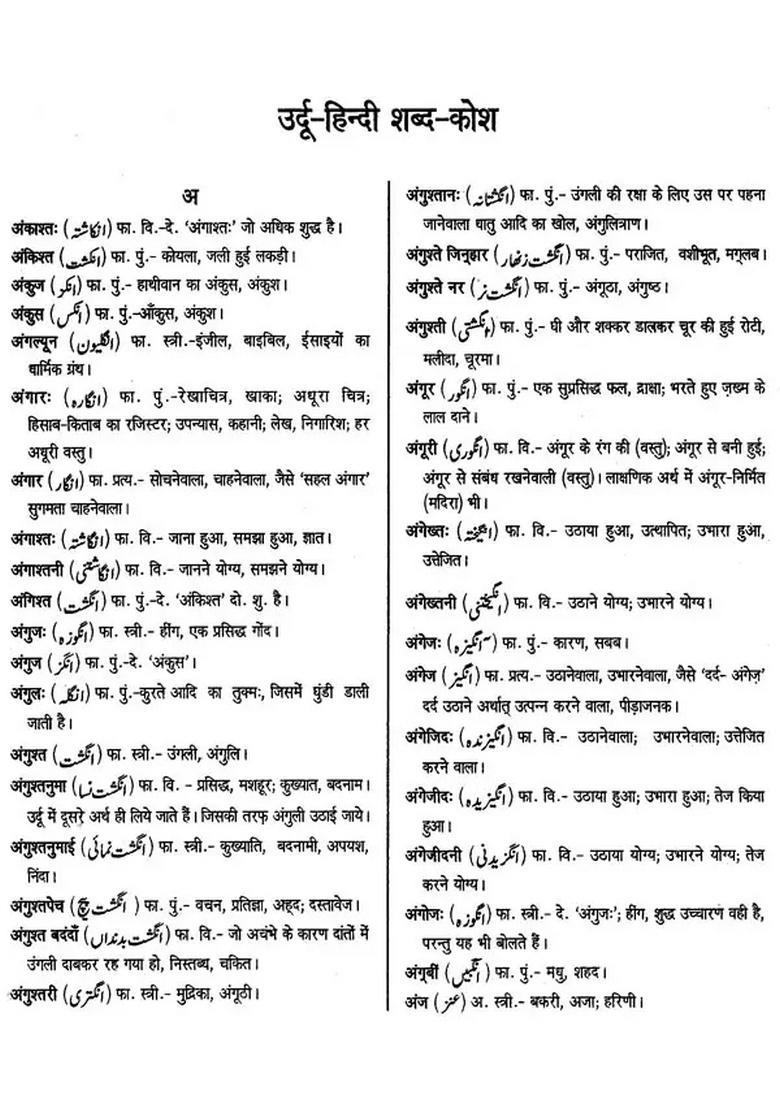 उर्दू-हिन्दी शब्द-कोश
अ
अंकाश्तः (انکاشتہ) फा. वि.-दे. 'अंगाश्तः' जो अधिक शुद्ध है।
अंकिश्त (انکشت) फा. पुं.- कोयला, जली हुई लकड़ी।
अंकुज (انکژ) फा. पुं.- हाथीवान का अंकुस, अंकुश।
अंकुस (انکس) फा. पुं.-आँकुस, अंकुश।
अंगल्यून (انگلیون) फा. स्त्री.-इंजील, बाइबिल, ईसाइयों का
धार्मिक ग्रंथ।
अंगारः (انگارہ) फा. पुं.-रेखाचित्र, खाका; अधूरा चित्र;
हिसाब-किताब का रजिस्टर; उपन्यास, कहानी; लेख, निगारिश; हर
अधूरी वस्तु।
अंगार (انگار) फा. प्रत्य.- सोचनेवाला, चाहनेवाला, जैसे 'सहल अंगार'
सुगमता चाहनेवाला।
अंगाश्तः (انگاشتہ) फा. वि.- जाना हुआ, समझा हुआ, ज्ञात।
अंगाश्तनी (انگاشتنی) फा. वि.- जानने योग्य, समझने योग्य।
अंगिश्त (انگشت) फा. पुं.-दे. 'अंकिश्त' दो. शु. है।
अंगुजः (انگوزہ) फा. स्त्री.- हींग, एक प्रसिद्ध गोंद।
अंगुज (انگژ) फा. पुं.-दे. 'अंकुस'।
अंगुलः (انگلہ) फा. पुं.-कुरते आदि का तुक्मः, जिसमें घुंडी डाली
जाती है।
अंगुश्त (انگشت) फा. स्त्री.- उंगली, अंगुलि।
अंगुश्तनुमा (انگشت نما) फा. वि. - प्रसिद्ध, मशहूर; कुख्यात, बदनाम।
उर्दू में दूसरे अर्थ ही लिये जाते हैं। जिसकी तरफ़ अंगुली उठाई जाये।
अंगुश्तनुमाई (انگشت نمائی) फा. स्त्री.- कुख्याति, बदनामी, अपयश,
निंदा।
अंगुश्तपेच (انگشت پیچ) फा. पुं.- वचन, प्रतिज्ञा, अह्द; दस्तावेज।
अंगुश्त बदंदाँ (انگشت بدنداں) फा. वि.- जो अचंभे के कारण दांतों में
उंगली दाबकर रह गया हो, निस्तब्ध, चकित।
अंगुश्तरी (انگشتری) फा. स्त्री.- मुद्रिका, अंगूठी।
अंगुश्तानः (انگشتانہ) फा. पुं.- उंगली की रक्षा के लिए उस पर पहना
जानेवाला धातु आदि का खोल, अंगुलित्राण।
अंगुश्ते जिनुहार (انگشت زنہار) फा. पुं.- पराजित, वशीभूत, मग़्लब।
अंगुश्ते नर (انگشت نر) फा. पुं.- अंगूठा, अंगुष्ठ।
अंगुश्ती (انگشتی) फा. पुं.- घी और शक्कर डालकर चूर की हुई रोटी,
मलीदा, चूरमा।
अंगूर (انگور) फा. पुं.- एक सुप्रसिद्ध फल, द्राक्षा; भरते हुए ज़ख़्म के
लाल दाने।
अंगूरी (انگوری) फा. वि.- अंगूर के रंग की (वस्तु); अंगूर से बनी हुई;
अंगूर से संबंध रखनेवाली (वस्तु)। लाक्षणिक अर्थ में अंगूर-निर्मित
(मदिरा) भी।
अंगेख्तः (انگیختہ) फा. वि.- उठाया हुआ, उत्थापित; उभारा हुआ,
उत्तेजित।
अंगेख्तनी (انگیختنی) फा. वि.- उठाने योग्य; उभारने योग्य।
अंगेजः (انگیزہ) फा. पुं.- कारण, सबब।
अंगेज (انگیز) फा. प्रत्य.- उठानेवाला, उभारनेवाला, जैसे 'दर्द- अंगेज़'
दर्द उठाने अर्थात् उत्पन्न करने वाला, पीड़ाजनक।
अंगेजिदः (انگیزندہ) फा. वि.- उठानेवाला; उभारनेवाला; उत्तेजित
करने वाला।
अंगेजीदः (انگیزیدہ) फा. वि.- उठाया हुआ; उभारा हुआ; तेज किया
हुआ।
अंगेजीदनी (انگیزیدنی) फा. वि.- उठाया योग्य; उभारने योग्य; तेज
करने योग्य।
अंगोजः (انگوزہ) फा. स्त्री.- दे. 'अंगुजः'; हींग, शुद्ध उच्चारण वही है,
परन्तु यह भी बोलते हैं।
अंग्बीं (انگبیں) फा. पुं.- मधु, शहद।
अंज (عنز) अ. स्त्री.- बकरी, अजा; हरिणी।